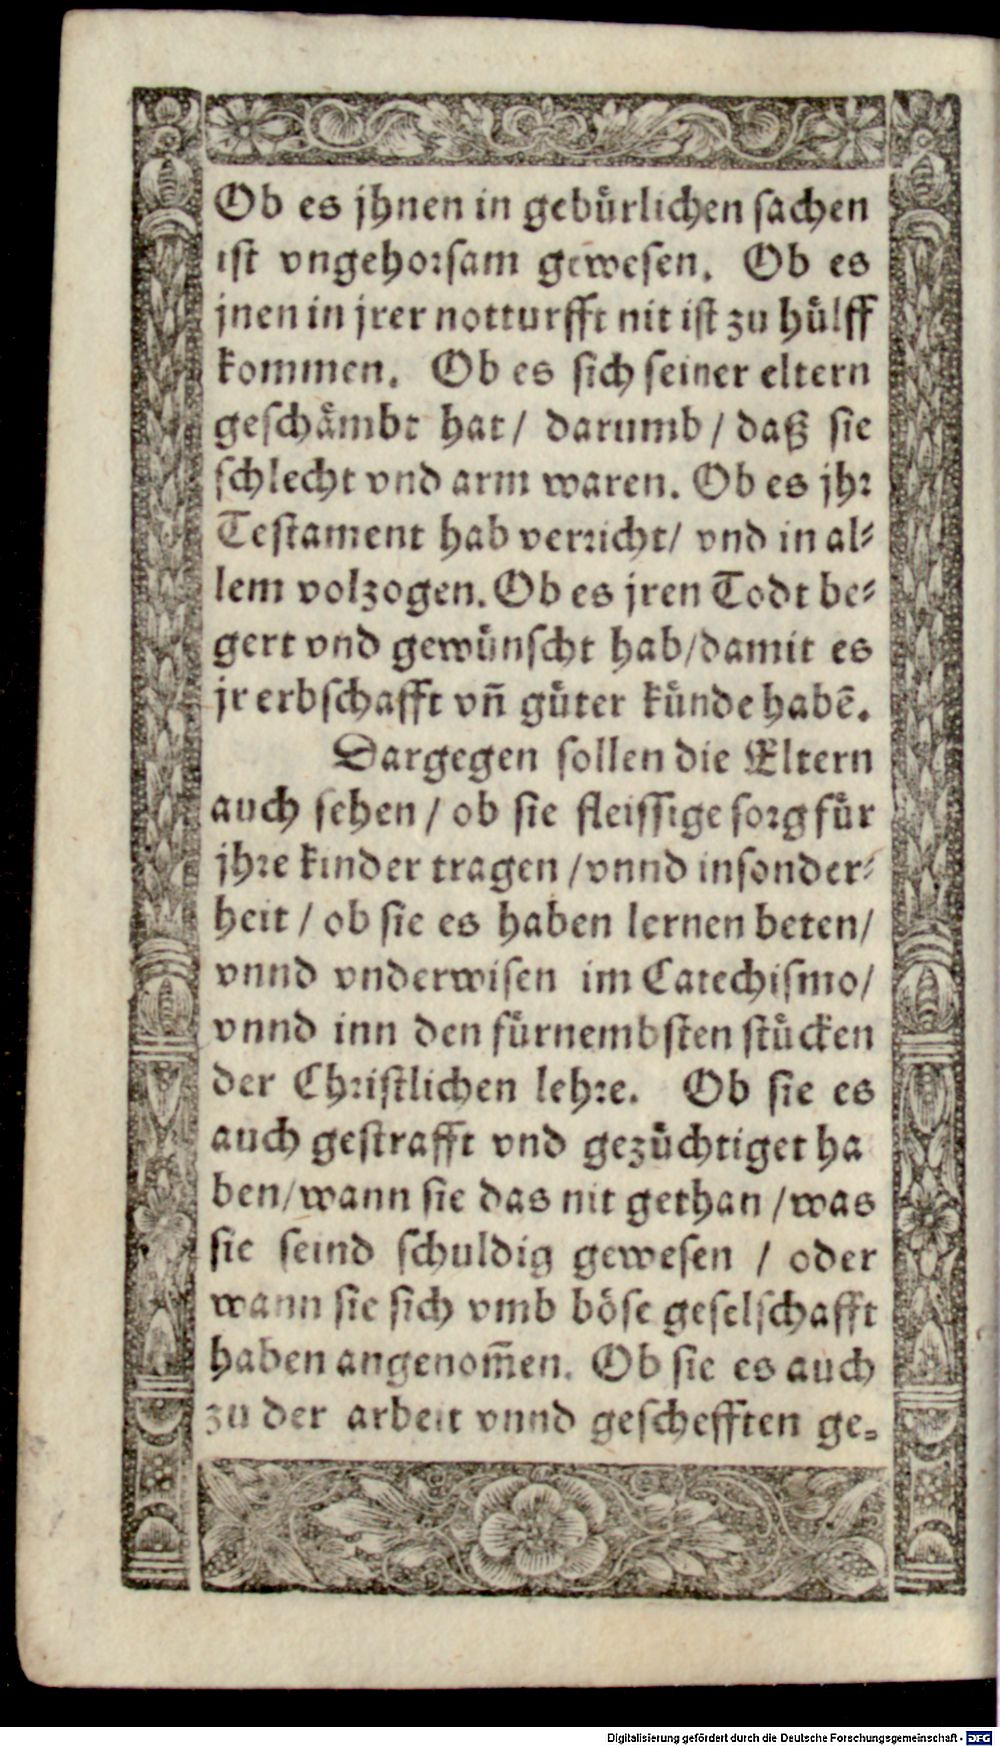 Ob es jhnen in gebuͤrlichen ſachen
iſt vngehorſam geweſen. Ob es
jnen in jrer notturfft nit iſt zu huͤlff
kommen. Ob es ſich ſeiner eltern
geſchaͤmbt hat / darumb / daß ſie
ſchlecht vnd arm waren. Ob es jhr
Teſtament hab verricht / vnd in al⸗
lem volzogen. Ob es jren Todt be⸗
gert vnd gewuͤnſcht hab / damit es
jr erbſchafft vn̄ guͤter kuͤnde habē.
Dargegen ſollen die Eltern
auch ſehen / ob ſie fleiſſige ſorg fuͤr
jhre kinder tragen / vnnd inſonder⸗
heit / ob ſie es haben lernen beten /
vnnd vnderwiſen im Catechiſmo /
vnnd inn den fuͤrnembſten ſtuͤcken
der Chriſtlichen lehre. Ob ſie es
auch geſtrafft vnd gezuͤchtiget ha
ben / wann ſie das nit gethan / was
ſie ſeind ſchuldig geweſen / oder
wann ſie ſich vmb boͤſe geſelſchafft
haben angenom̄en. Ob ſie es auch
zu der arbeit vnnd geſchefften ge⸗
Digitalisierung gefördert durch die Deutsche Forschungsgemeinschaft - DFG